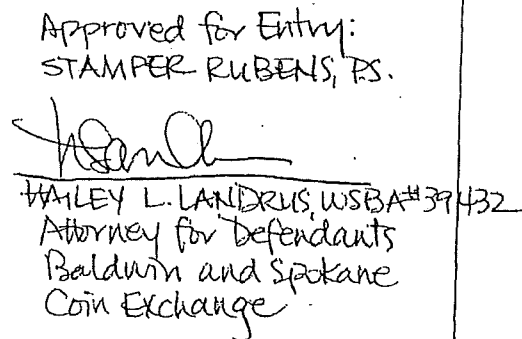 Approved for Entry:
STAMPER RUBENS, P.S.
HAILEY L. LANDRUS, WSBA #39432
Attorney for Defendants
Baldwin and Spokane
Coin Exchange